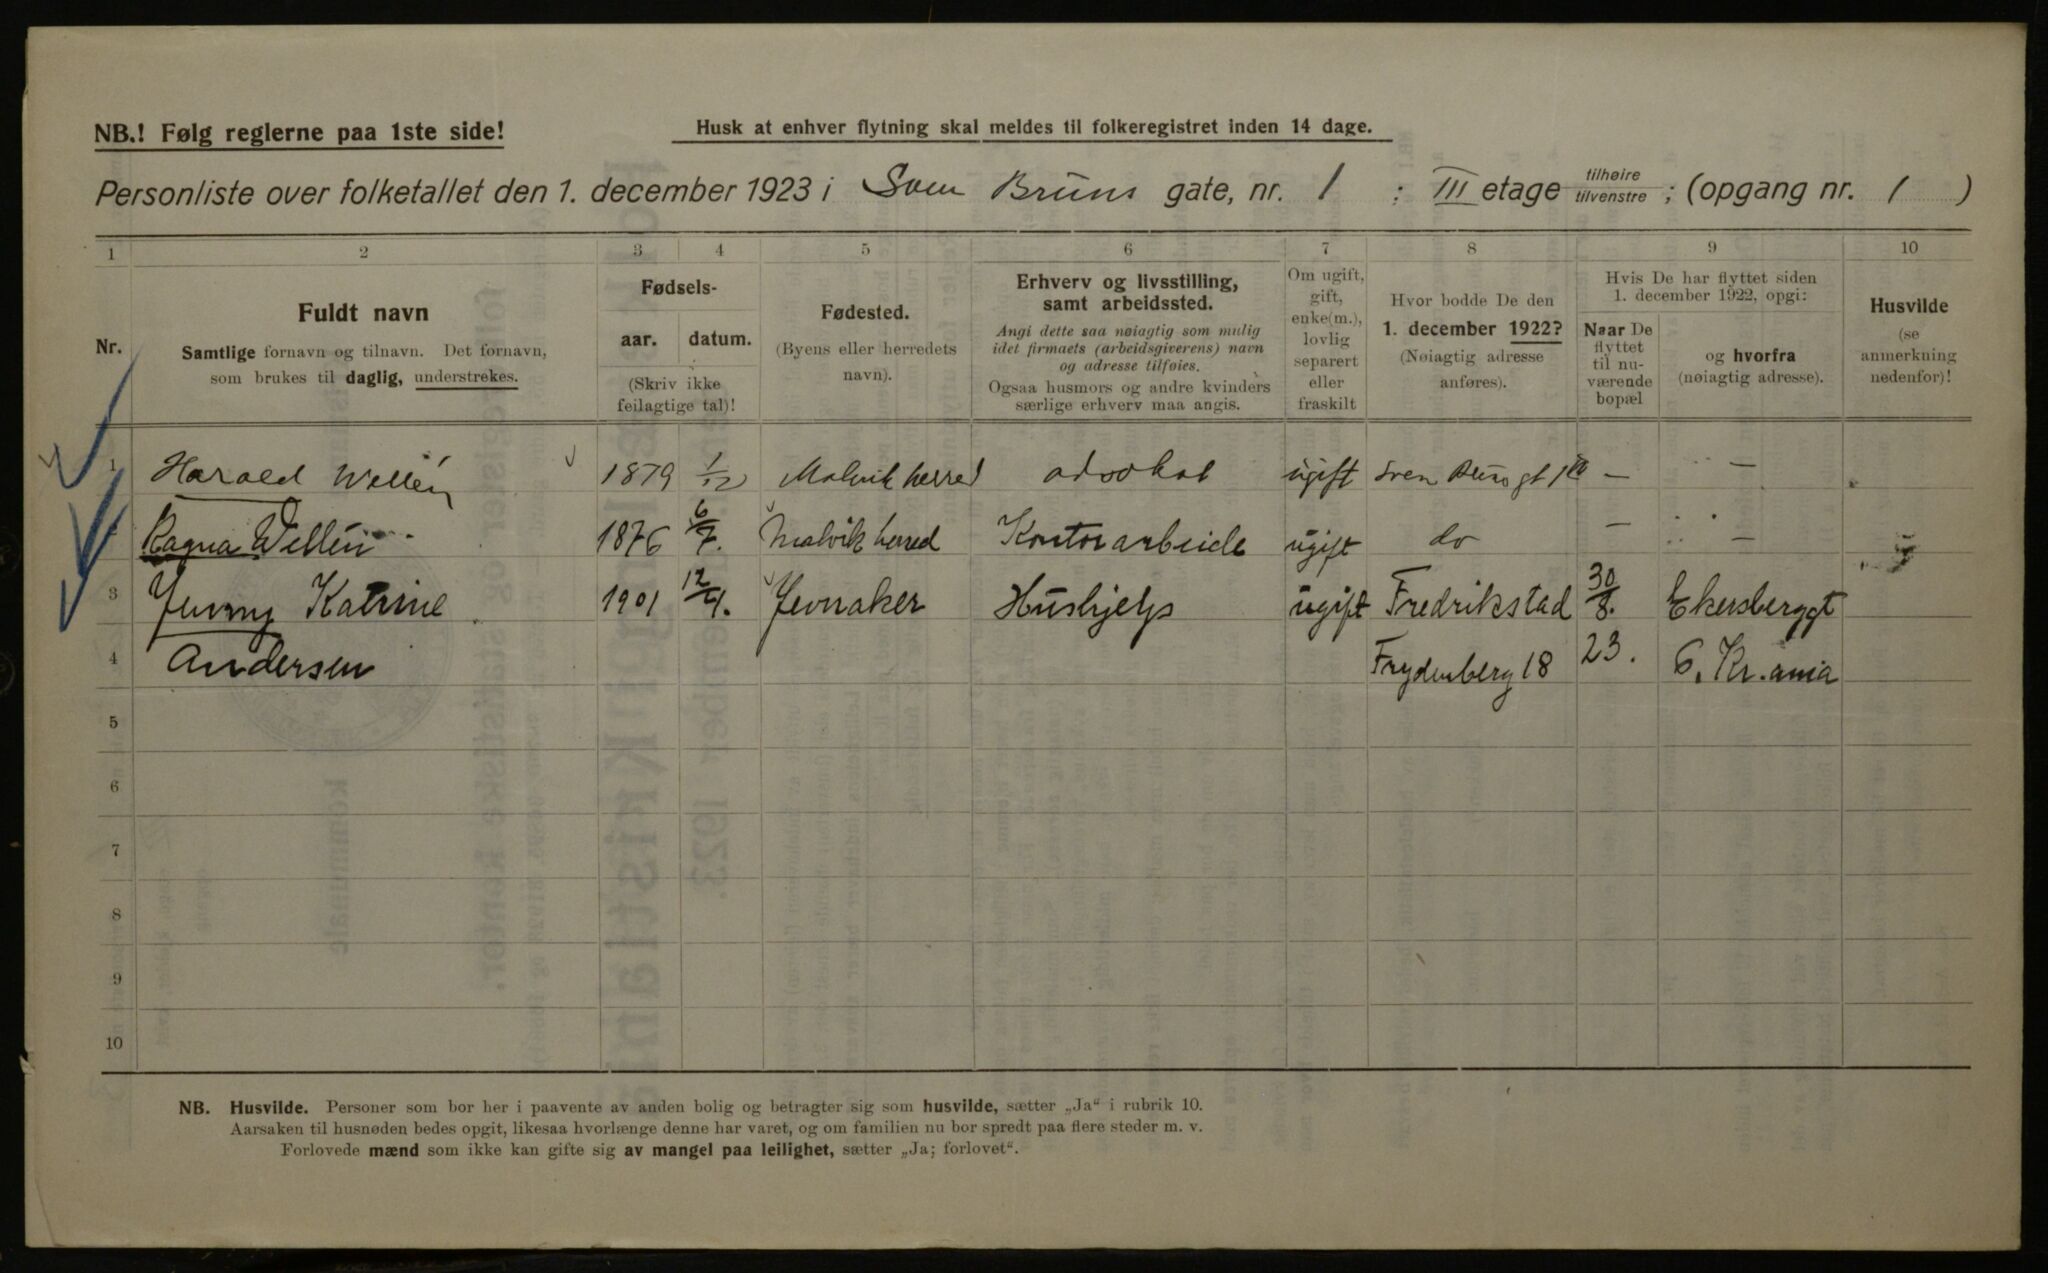 NB.! Følg reglerne paa 1ste side!
Husk at enhver flytning skal meldes til folkeregistret inden 14 dage.
Personliste over folketallet den 1. december 1923 i Sven Bruns gate, nr. 1 : III etage tilhøire tilvenstre ; (opgang nr. 1 )
1 2 3 4 5 6 7 8 9 10
Nr.
Fuldt navn
Samtlige fornavn og tilnavn. Det fornavn,
som brukes til daglig, understrekes.
Fødsels-
aar. datum.
(Skriv ikke
feilagtige tal)!
Fødested.
(Byens eller herredets
navn).
Erhverv og livsstilling,
samt arbeidssted.
Angi dette saa nøiagtig som mulig
idet firmaets (arbeidsgiverens) navn
og adresse tilføies.
Ogsaa husmors og andre kvinders
særlige erhverv maa angis.
Om ugift,
gift,
enke(m.),
lovlig
separert
eller
fraskilt
Hvor bodde De den
1. december 1922?
(Nøiagtig adresse
anføres).
Hvis De har flyttet siden
1. december 1922, opgi:
Naar De
flyttet
til nu-
værende
bopæl
og hvorfra
(nøiagtig adresse).
Husvilde
(se
anmerkning
nedenfor)!
1 Harald Wellén 1879 1/12 Malvik herred advokat ugift Sven Brunsgt 1 — —
Ragna Wellén 1876 6/7. Malvik herred Kontorarbeide ugift do — —
3 Jenny Katrine 1901 12/4. Jevnaker Hushjelp ugift Fredrikstad 30/8. Ekersberggt
4 Andersen Frydenberg 18 23. 6. Kr.ania
5
6
7
8
9
10
NB. Husvilde. Personer som bor her i paavente av anden bolig og betragter sig som husvilde, sætter „Ja“ i rubrik 10.
Aarsaken til husnøden bedes opgit, likesaa hvorlænge denne har varet, og om familien nu bor spredt paa flere steder m. v.
Forlovede mænd som ikke kan gifte sig av mangel paa leilighet, sætter „Ja; forlovet“.